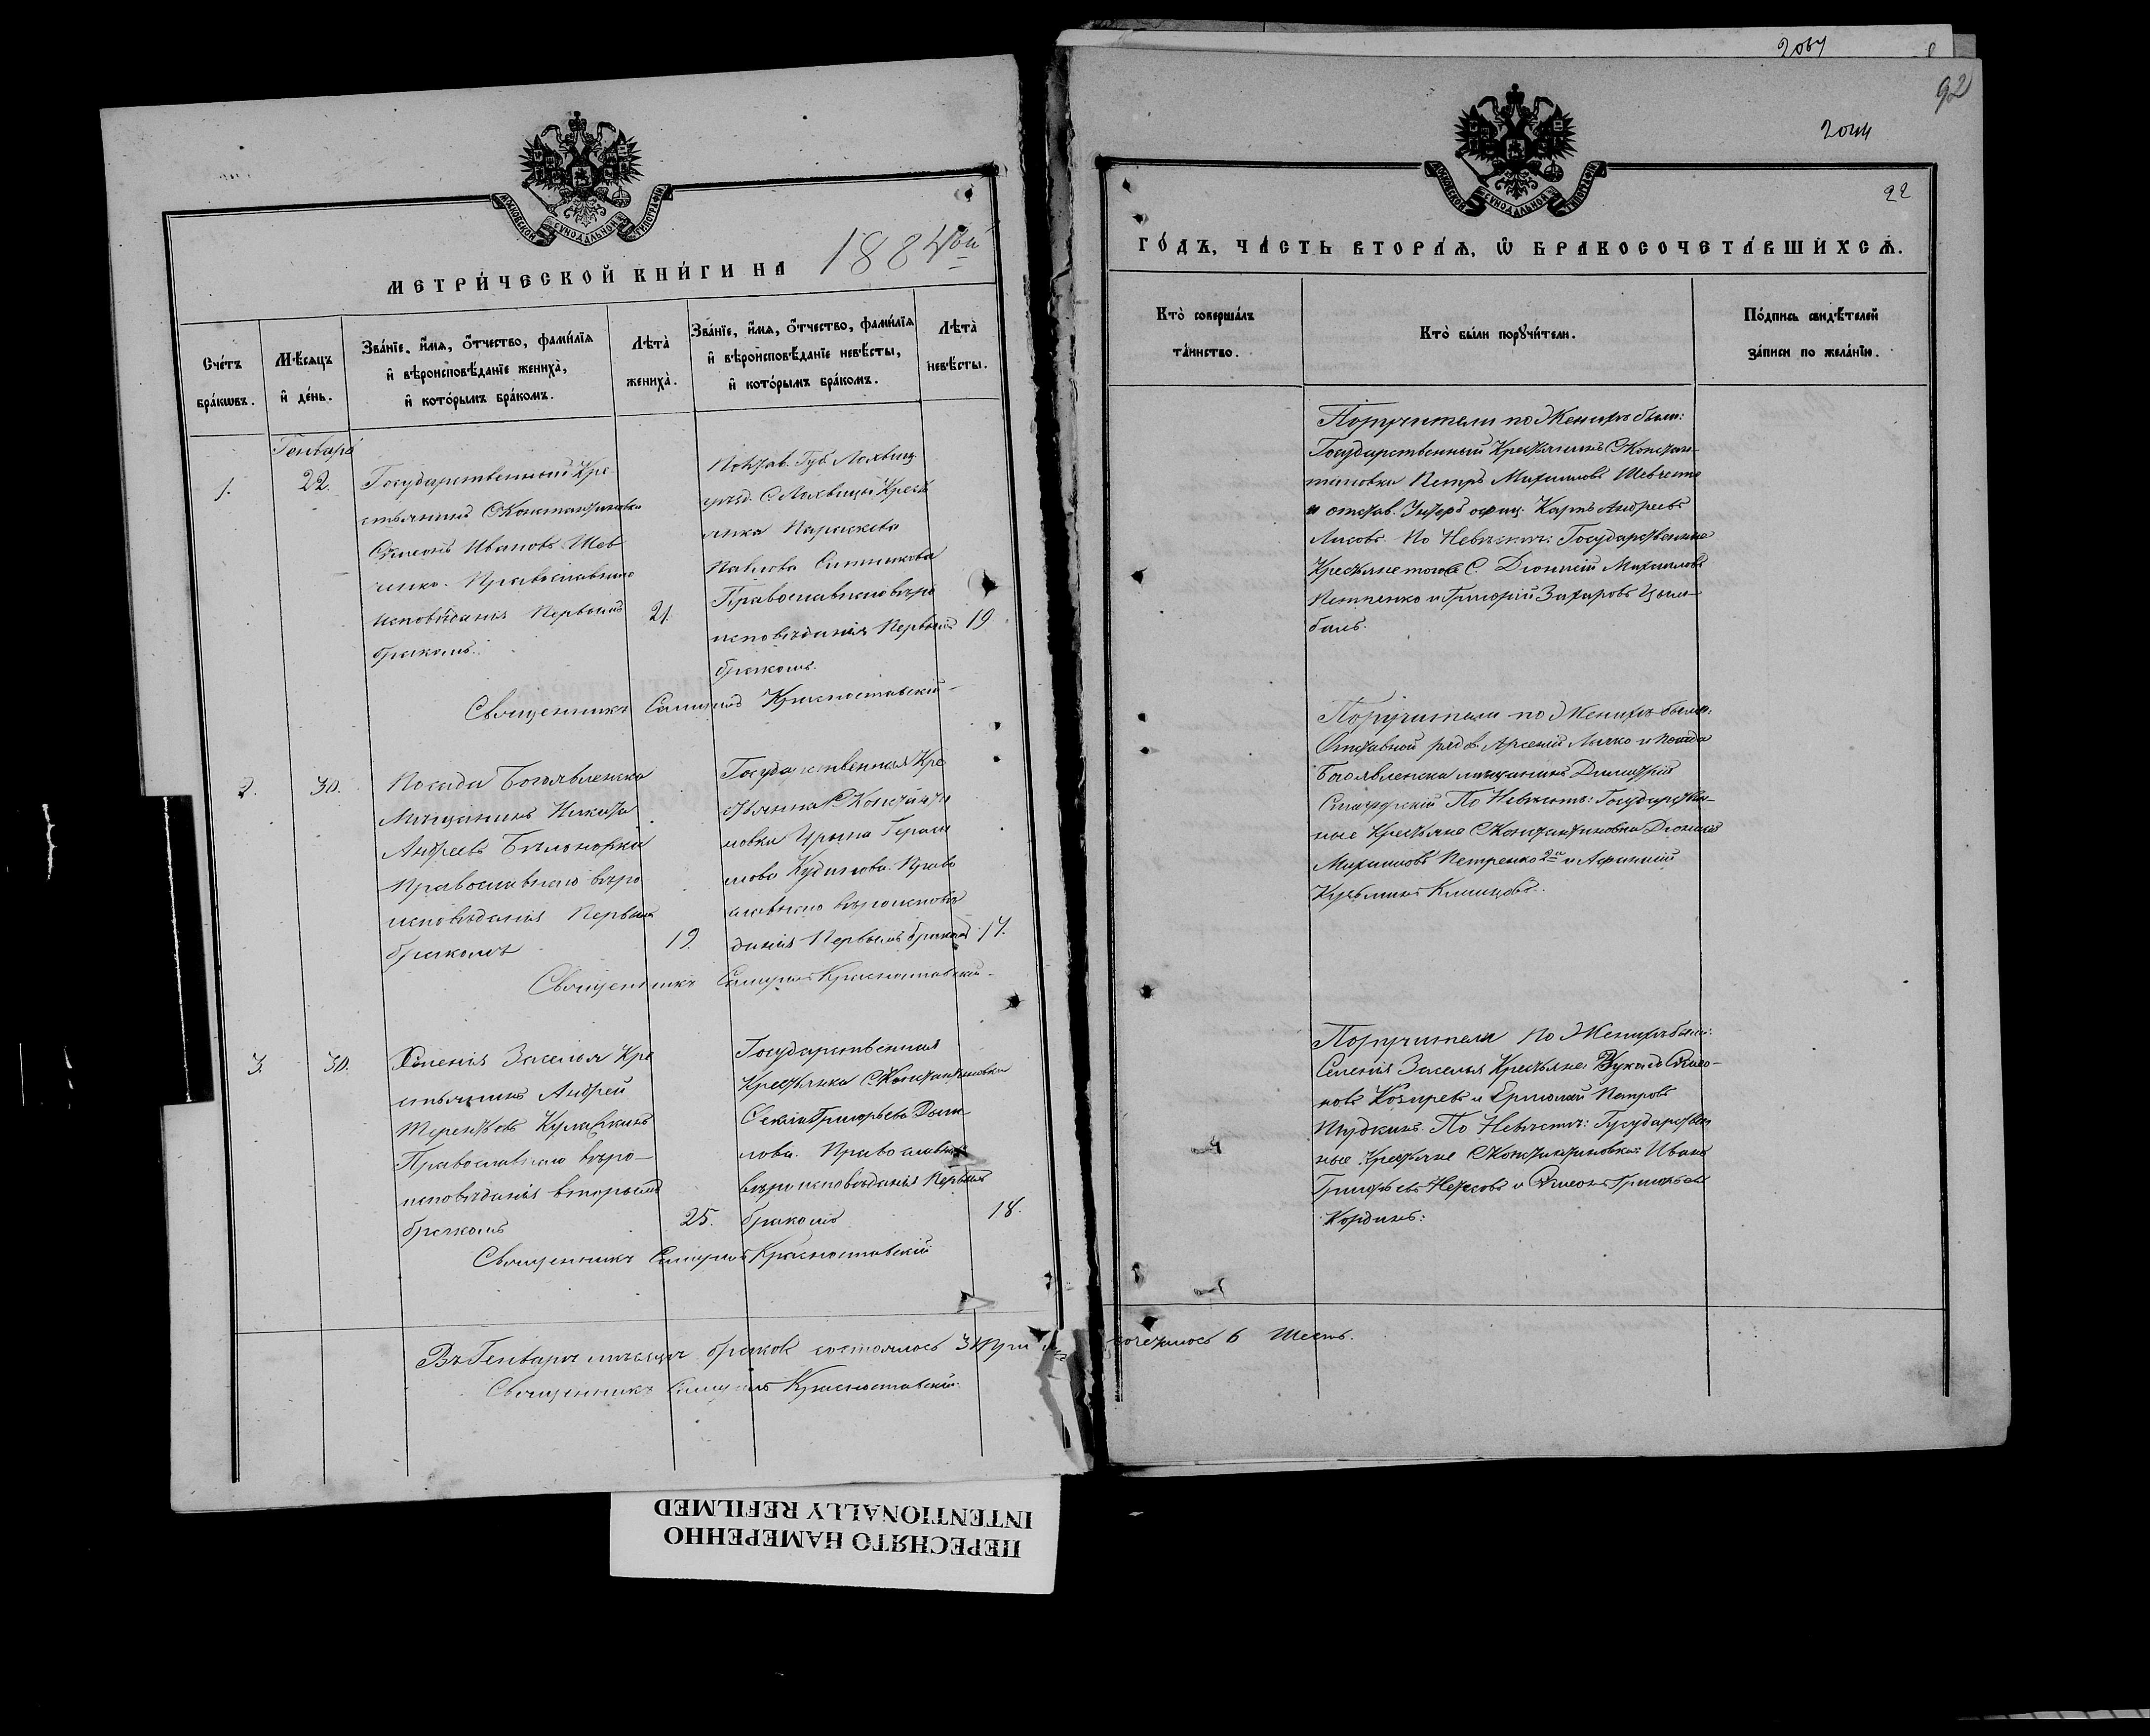 2064
92
2044
22
МОСКОВСКОЙ СѴНОДАЛЬНОЙ ТИПОГРАФІИ
МЕТРИ́ЧЕСКОЙ КНИ́ГИ НА 1884ый
Сче́тъ бра́кѡвъ.
Мѣ́сяцъ и҆ де́нь.
Зва́нїе, и҆́мя, ѻ҆́тчество, фами́лїя
и҆ вѣроисповѣ́данїе жениха̀,
и҆ кото́рымъ бра́комъ.
Лѣта̀ жениха̀.
Зва́нїе, и҆́мя, ѻ҆́тчество, фами́лїя
и҆ вѣроисповѣ́данїе невѣ́сты,
и҆ кото́рымъ бра́комъ.
Лѣта̀ невѣ́сты.
Генваря
1.
22.
Государственный Кре
стьянинъ С Константиновки
Симеонъ Ивановъ Шев
ченко. Православнаго
исповѣданія Первымъ
бракомъ.
21.
Полтав. Губ. Лохвиц
уѣзд. С. Крестъ
янка Параскева
Павлова Ситникова
Православнаго вѣро
исповѣданія Первымъ
бракомъ.
19
Священникъ Самуилъ Красноставскій
2.
30.
Посада Богоявленска
Мѣщанинъ Никита
Андреевъ
Православнаго вѣро
исповѣданія Первымъ
бракомъ
19.
Государственная Кре
стьянка С Константи
новки Ирина Гераси
мова Кудимова. Право
славнаго вѣроисповѣ
данія Первымъ бракомъ
17.
Священникъ Самуилъ Красноставскій
3.
30.
Селенія Заселья Кре
стьянинъ Андрей
Терентьевъ
Православнаго вѣро-
исповѣданія вторымъ
бракомъ
25.
Государственная
Крестьянка С Константиновки
Григорьева Дани
лова. Православнаго
вѣроисповѣданія Первымъ
бракомъ
18.
Священникъ Самуилъ Красноставскій
Въ Генварѣ мѣсяцѣ браковъ состоялось 3 три
Священникъ Самуилъ Красноставскій
МОСКОВСКОЙ СѴНОДАЛЬНОЙ ТИПОГРАФІИ
ГО́ДЪ, ЧА́СТЬ ВТОРА́Я, Ѡ҆ БРАКОСОЧЕТА́ВШИХСЯ.
Кто̀ соверша́лъ
та́инство.
Кто̀ бы́ли порꙋчи́тели.
По́дпись свидѣ́телей
за́писи по жела́нїю.
Поручители по Женихѣ были:
Государственный Крестьянинъ С Констан-
тиновки Петръ Михаиловъ Шевченко
и отстав. Унтеръ офиц. Карпъ Андреевъ
Лисовъ. По Невѣстѣ: Государственные
Крестьяне того С. Діонисій Михаиловъ
Петренко и Григорій Захаровъ Цым-
балъ.
Поручители по Женихѣ были:
Отставной ряд. Арсеній Лычко и Посада
Богоявленска мѣщанинъ Димитрій
По Невѣстѣ: Государствен-
ные Крестьяне С Константиновки Діонисій
Михаиловъ Петренко 2й и Афанасій
Кузьминъ Климовъ.
Поручители по Женихѣ были:
Селенія Заселья Крестьяне Лука Симео-
новъ Козыревъ и Ермолай Петровъ
По Невѣстѣ: Государствен
ные Крестьяне С Константиновки: Иванъ
Григорьевъ и Симеонъ Григорьевъ
Кординъ:
сочеталось 6 Шесть.
ПЕРЕСНЯТО НАМЕРЕННО
INTENTIONALLY REFILMED